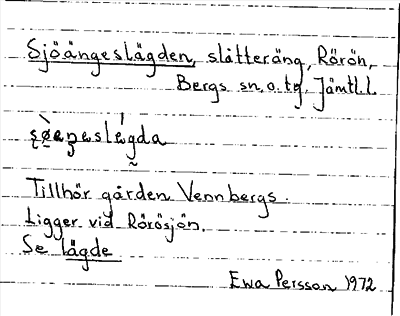 Sjöängeslägden, slåtteräng, Rörön,
Bergs sn. o. tg, Jämtl. l.
Tillhör gården Vennbergs.
Ligger vid Rörösjön.
Se lägde
Ewa Persson 1972